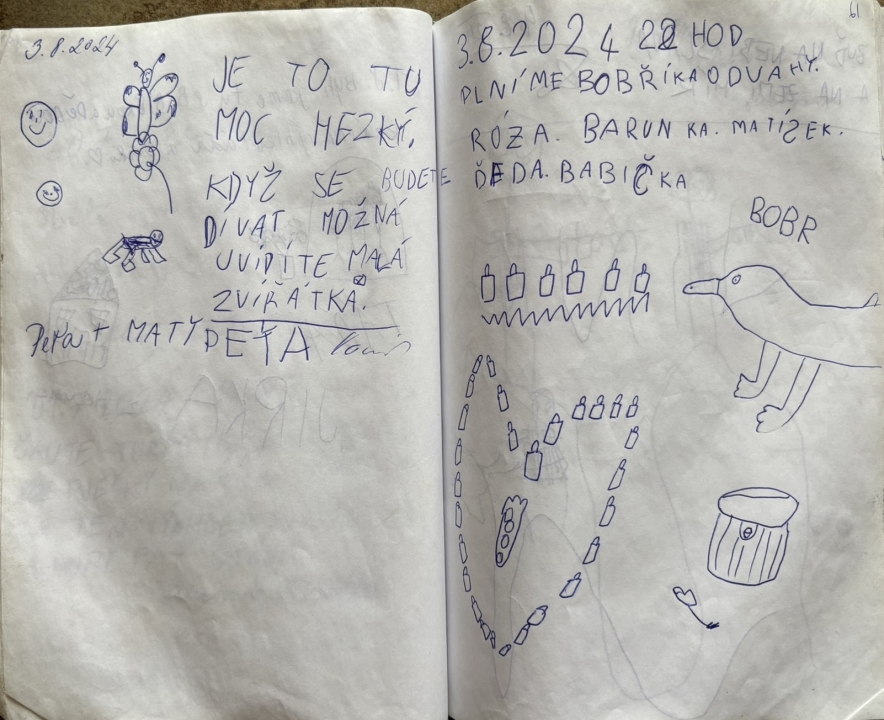 3.8.2024
JE TO TU
MOC HEZKÝ.
KDYŽ SE BUDETE
DÍVAT MOŽNÁ
UVIDÍTE MALÁ
ZVÍŘÁTKA.
Peťa + MATÝ PEŤA
61
3.8.2024 22 HOD
PLNÍME BOBŘÍKA ODVAHY.
RÓZA. BARUNKA. MATÍSEK.
DĚDA. BABIČKA
BOBR